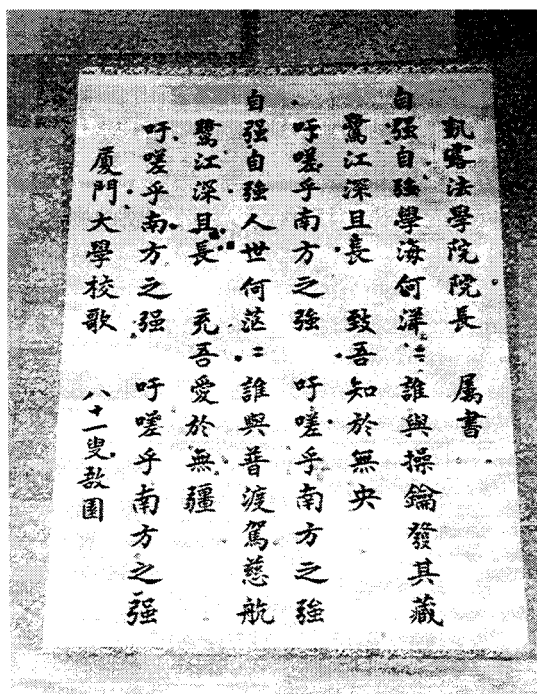 凱露法學院院長 属書
自强自強學海何洋〻 誰與操鑰發其藏
鷺江深且長 致吾知於無央
吁嗟乎南方之強 吁嗟乎南方之強
自强自強人世何茫〻 誰與普渡駕慈航
鷺江深且長 充吾愛於無疆
吁嗟乎南方之强 吁嗟乎南方之强
厦門大學校歌 八十一叟